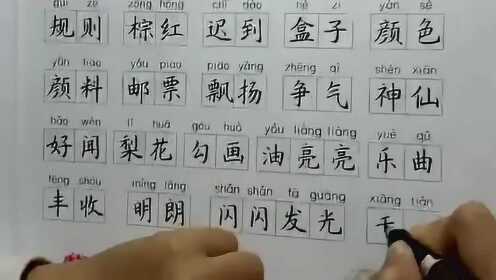 guī zé zōng hóng chí dào hé zi yán sè
规则 棕红 迟到 盒子 颜色
yán liào yóu piào piāo yáng zhēng qì shén xiān
颜料 邮票 飘扬 争气 神仙
hǎo wén lí huā gōu huà yóu liàng liàng yuè qǔ
好闻 梨花 勾画 油亮亮 乐曲
fēng shōu míng lǎng shǎn shǎn fā guāng xiāng tián
丰收 明朗 闪闪发光